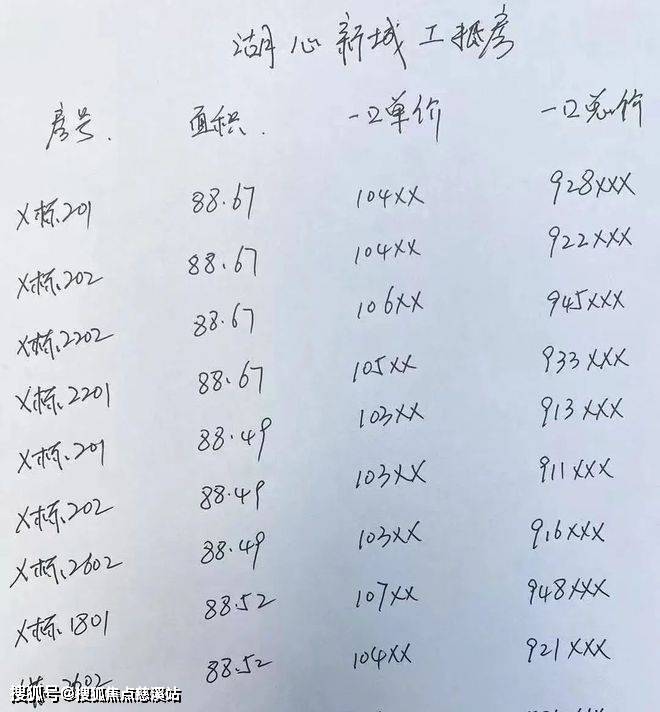 湖心新城工抵房
房号. 面积. 一口单价 一口总价
X栋.201 88.67 104XX 928XXX
X栋.202 88.67 104XX 922XXX
X栋.2202 88.67 106XX 945XXX
X栋.2201 88.67 105XX 933XXX
X栋.201 88.49 103XX 913XXX
X栋.202 88.49 103XX 911XXX
X栋.2602 88.49 103XX 916XXX
X栋.1801 88.52 107XX 948XXX
栋.2602 88.52 104XX 921XXX
搜狐号@搜狐焦点慈溪站